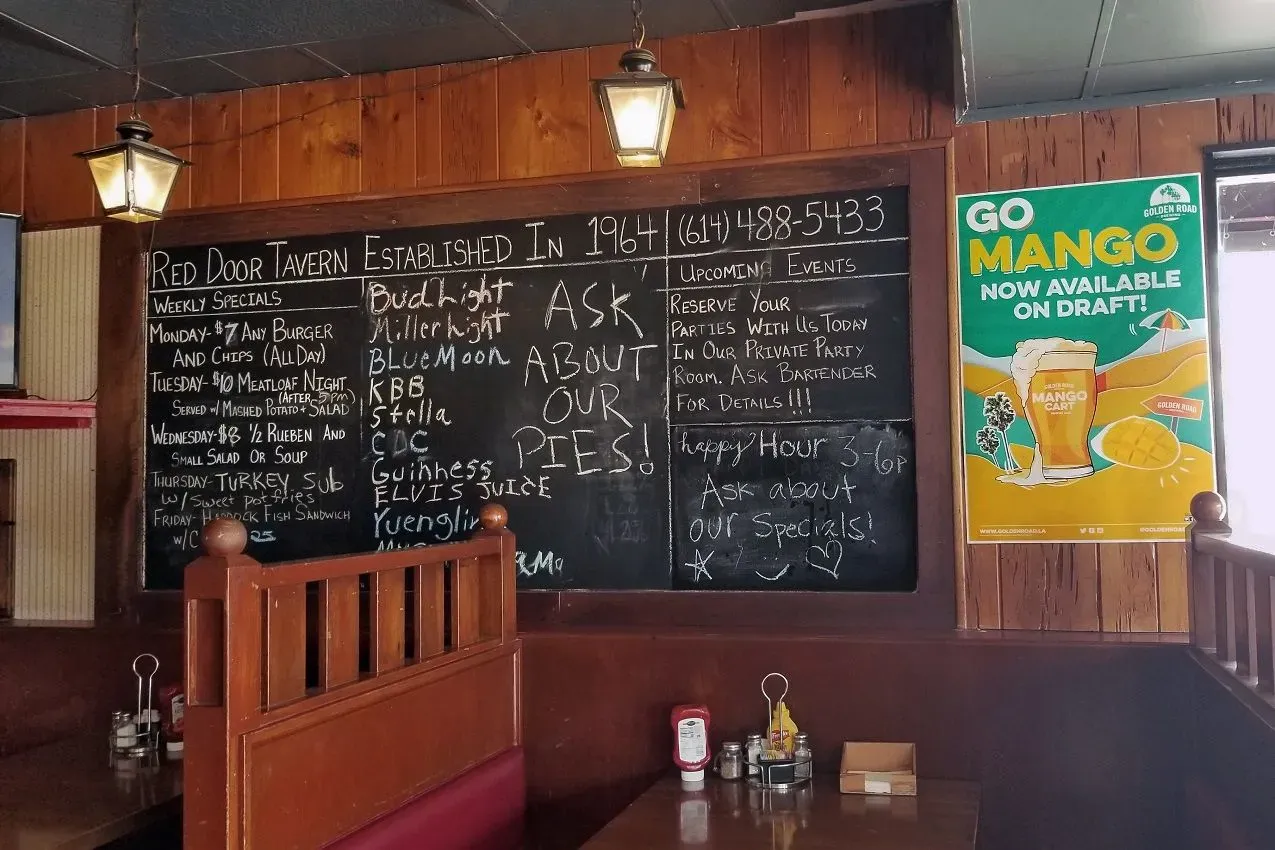 RED DOOR TAVERN ESTABLISHED IN 1964 (614) 488-5433
WEEKLY SPECIALS
MONDAY- $7 ANY BURGER
AND CHIPS (ALL DAY)
TUESDAY- $10 MEATLOAF NIGHT
(AFTER 5PM)
SERVED W/ MASHED POTATO + SALAD
WEDNESDAY- $8 1/2 RUEBEN AND
SMALL SALAD OR SOUP
THURSDAY- TURKEY SUB
W/ SWEET POT FRIES
FRIDAY- HADDOCK FISH SANDWICH
W/C
Bud Light
Miller Light
BLUE MOON
KBB
Stella
CDC
Guinness
ELVIS JUICE
ASK
ABOUT
OUR
PIES!
UPCOMING EVENTS
RESERVE YOUR
PARTIES WITH US TODAY
IN OUR PRIVATE PARTY
ROOM. ASK BARTENDER
FOR DETAILS!!!
happy Hour 3-6P
Ask about
our Specials!
GO
MANGO
NOW AVAILABLE
ON DRAFT!
GOLDEN ROAD
BREWING
GOLDEN ROAD
MANGO
CART
GOLDEN ROAD
WWW.GOLDENROAD.LA
@GOLDENROAD